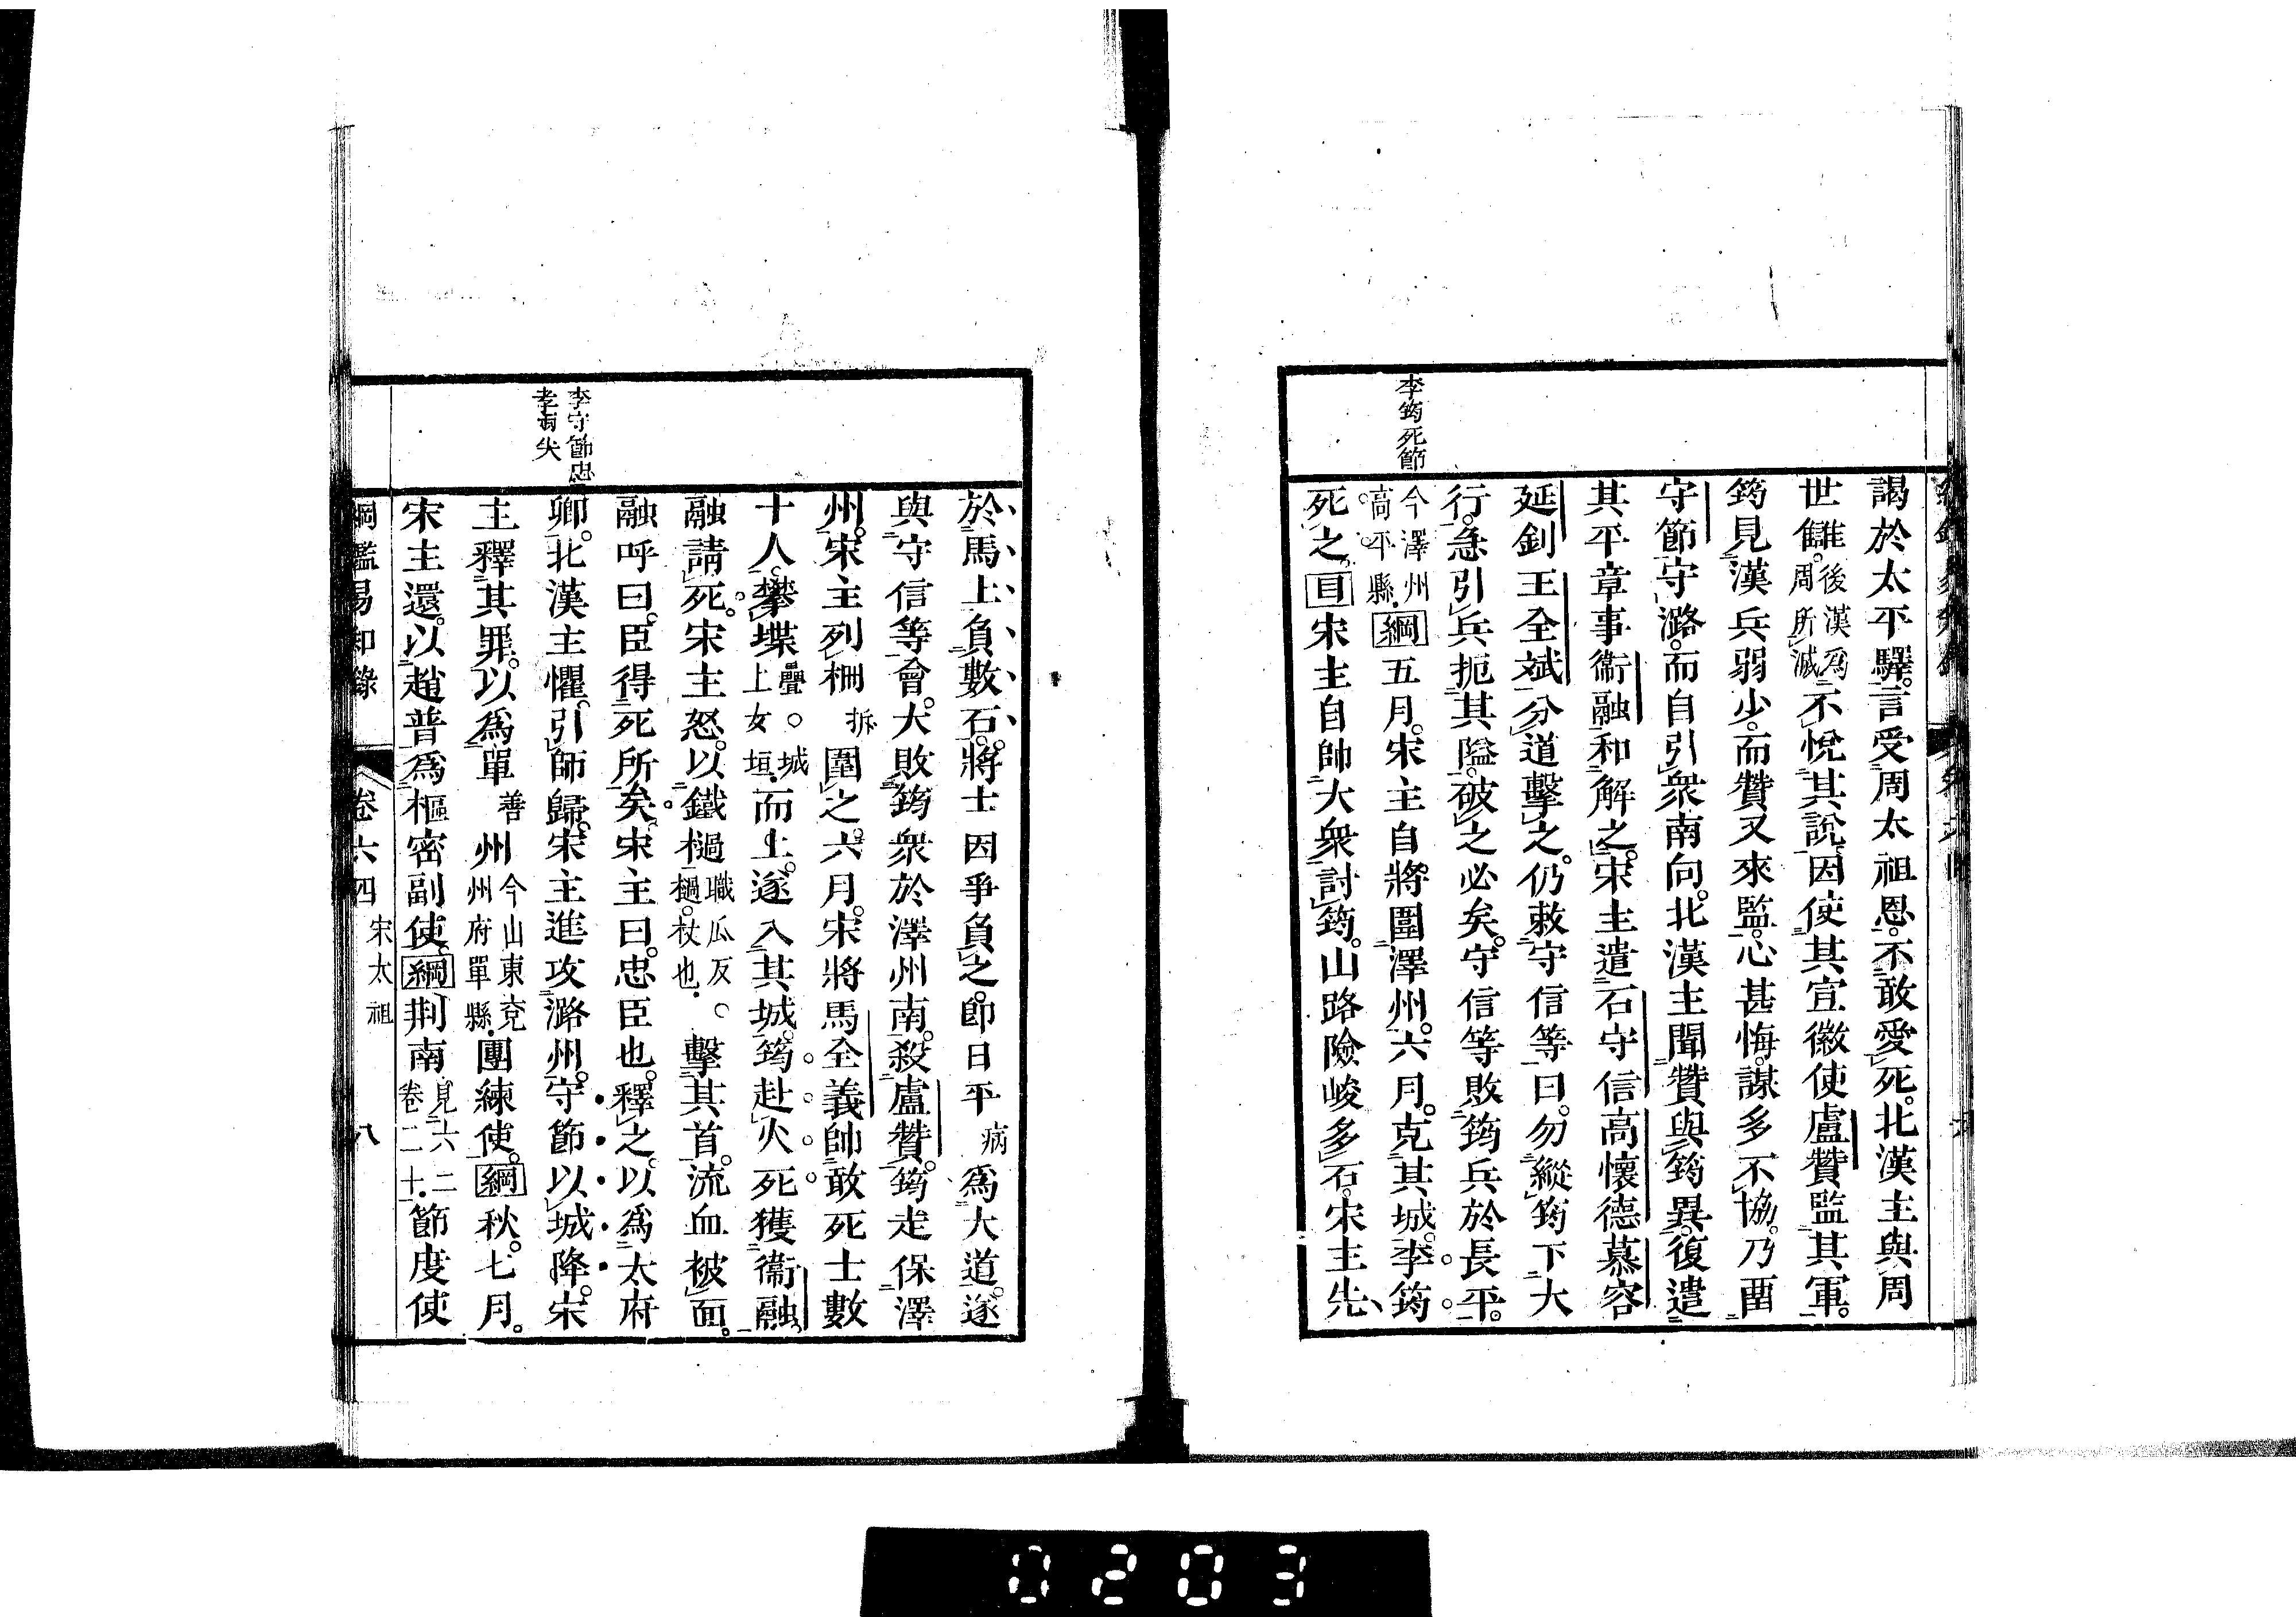 李筠死節
謁於太平驛。言受周太祖恩。不敢愛死。北漢主與周
世讎。後漢爲周所滅不悅其說。因使其宣徽使盧贊監其軍。
筠見漢兵弱少。而贊又來監。心甚悔。謀多不協。乃畱
守節守潞。而自引衆南向。北漢主聞贊與筠異。復遣
其平章事衞融和解之。宋主遣石守信高懷德慕容
延釗王全斌分道擊之。仍敕守信等曰。勿縱筠下大
行。急引兵扼其隘。破之必矣。守信等敗筠兵於長平。
今澤州高平縣。綱五月。宋主自將圍澤州。六月。克其城。李筠
死之。目宋主自帥大衆討筠。山路險峻多石。宋主先
李守節忠
孝兩失
於馬上負數石。將士因爭負之。卽日平病爲大道。遂
與守信等會。大敗筠衆於澤州南。殺盧贊。筠走保澤
州。宋主列柵拆圍之。六月。宋將馬全義帥敢死士數
十人。攀堞疊。城上女垣。而上。遂入其城。筠赴火死。獲衞融。
融請死。宋主怒。以鐵檛職瓜反。檛。杖也。擊其首。流血被面。
融呼曰。臣得死所矣。宋主曰。忠臣也。釋之。以爲太府
卿。北漢主懼。引師歸。宋主進攻潞州。守節以城降。宋
主釋其罪。以爲單善州今山東兗州府單縣。團練使。綱秋。七月。
宋主還。以趙普爲樞密副使。綱荆南見六二卷二十。節度使
綱鑑易知錄 卷六四 宋太祖 八
0203